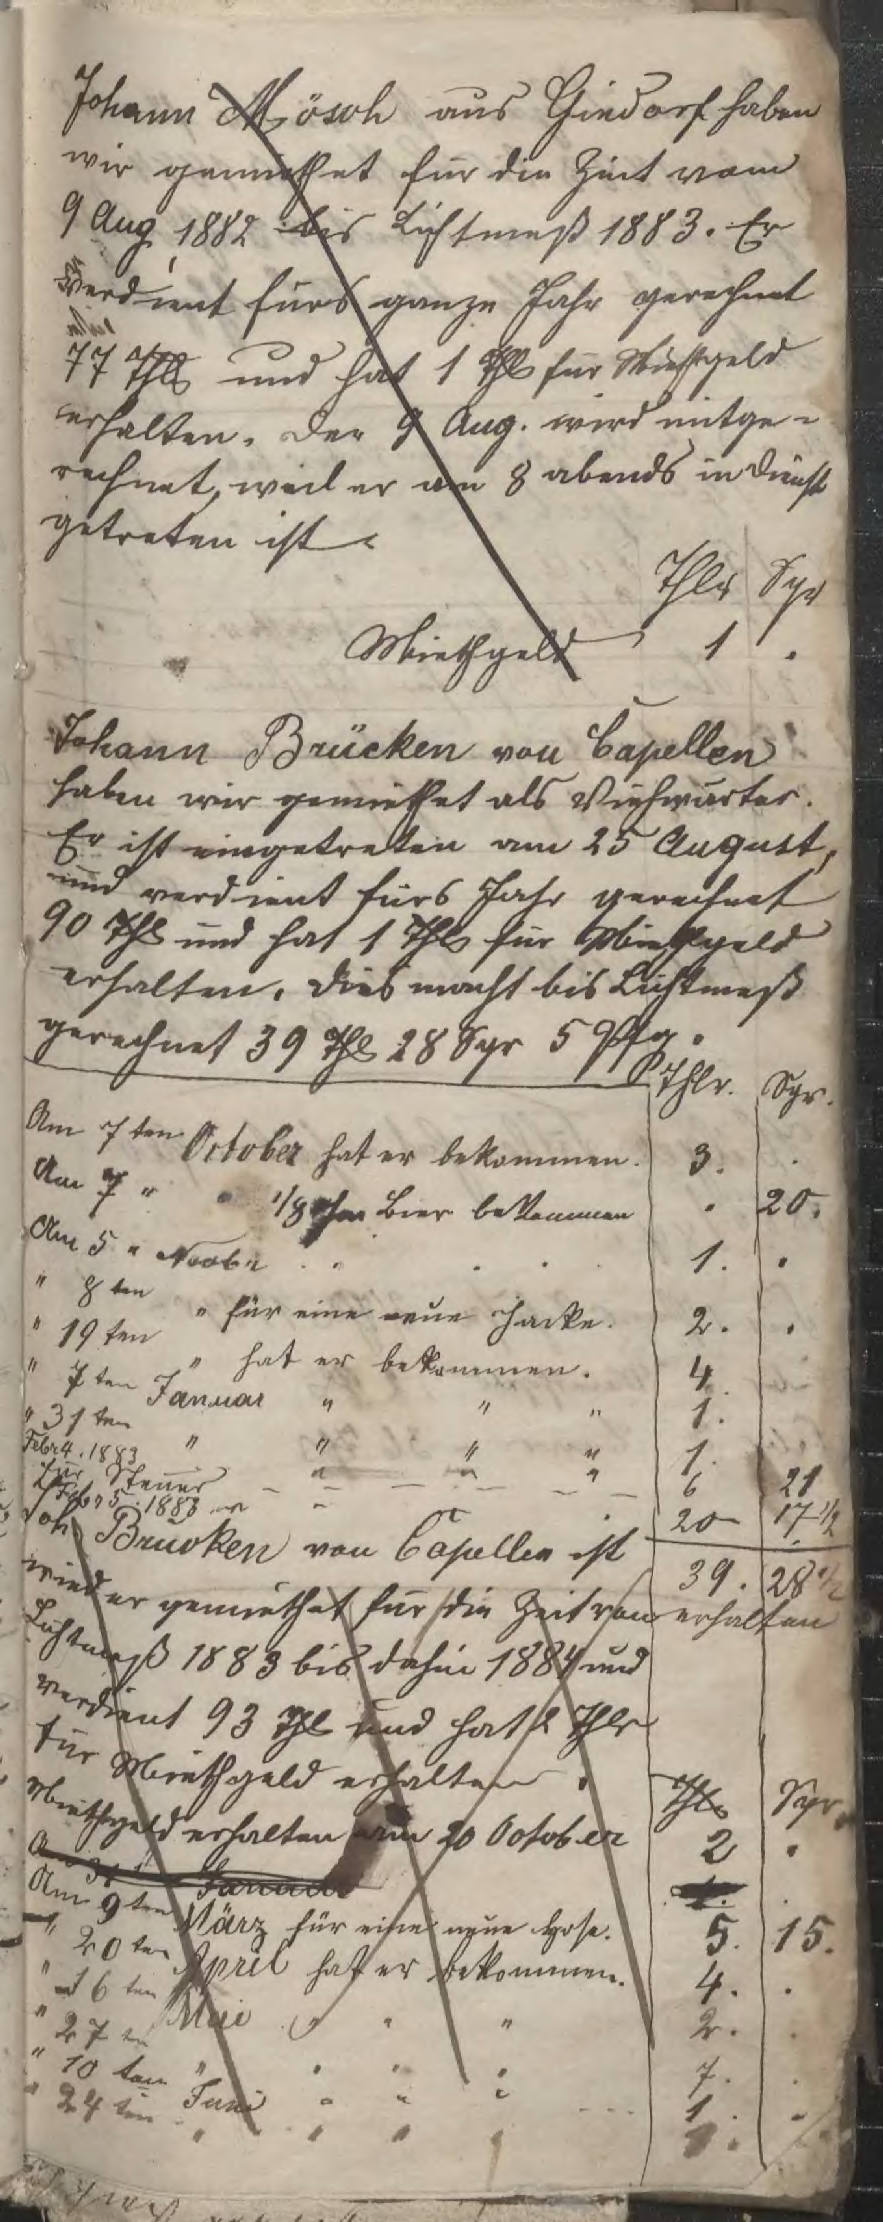 Johann Mösch aus Giesdorf haben
wir gemiethet für die Zeit vom
9 Aug 1882 bis Lichtmeß 1883. Er
verdient fürs ganze Jahr gerechnet
77 Thlr und hat 1 Thlr für Miethgeld
erhalten. Der 9 Aug. wird mitge-
rechnet, weil er am 8 abends in Dienst
getreten ist.
Thlr Sgr
Miethgeld 1 .
Johann Brücken von Capellen
haben wir gemiethet als Viehwärter.
Er ist eingetreten am 25 August,
und verdient fürs Jahr gerechnet
90 Thlr und hat 1 Thlr für Miethgeld
erhalten. Dies macht bis Lichtmeß
gerechnet 39 Thlr 28 Sgr 5 Pfg.
Thlr. Sgr.
Am 7 ten October hat er bekommen. 3. .
Am 7 " 1/8 Bier bekommen . 20.
Am 5 " Novbr . . . . 1. .
" 8 ten " für eine neue Jacke. 2. .
" 19 ten " hat er bekommen. 4
" 7 ten Januar " " " 1.
" 31 ten " " " " 1.
Febr 4. 1883 Für Steuer " " " 6 21
Febr 5. 1883 20 17 1/2
39. 28 1/2
erhalten
Joh Brücken von Capellen ist
wieder gemiethet für die Zeit von
Lichtmeß 1883 bis dahin 1884 und
verdient 93 Thlr und hat 2 Thlr
für Miethgeld erhalten.
Thlr Sgr.
Miethgeld erhalten am 20 October 2 .
31 Januar
Am 9 ten März für eine neue Hose. 5. 15.
" 20 ten April hat er bekommen. 4. .
" 16 ten Mai " " " 2. .
" 27 ten " " " " 7. .
" 10 ten Juni " " " 1. .
" 24 ten " " " " 1. .